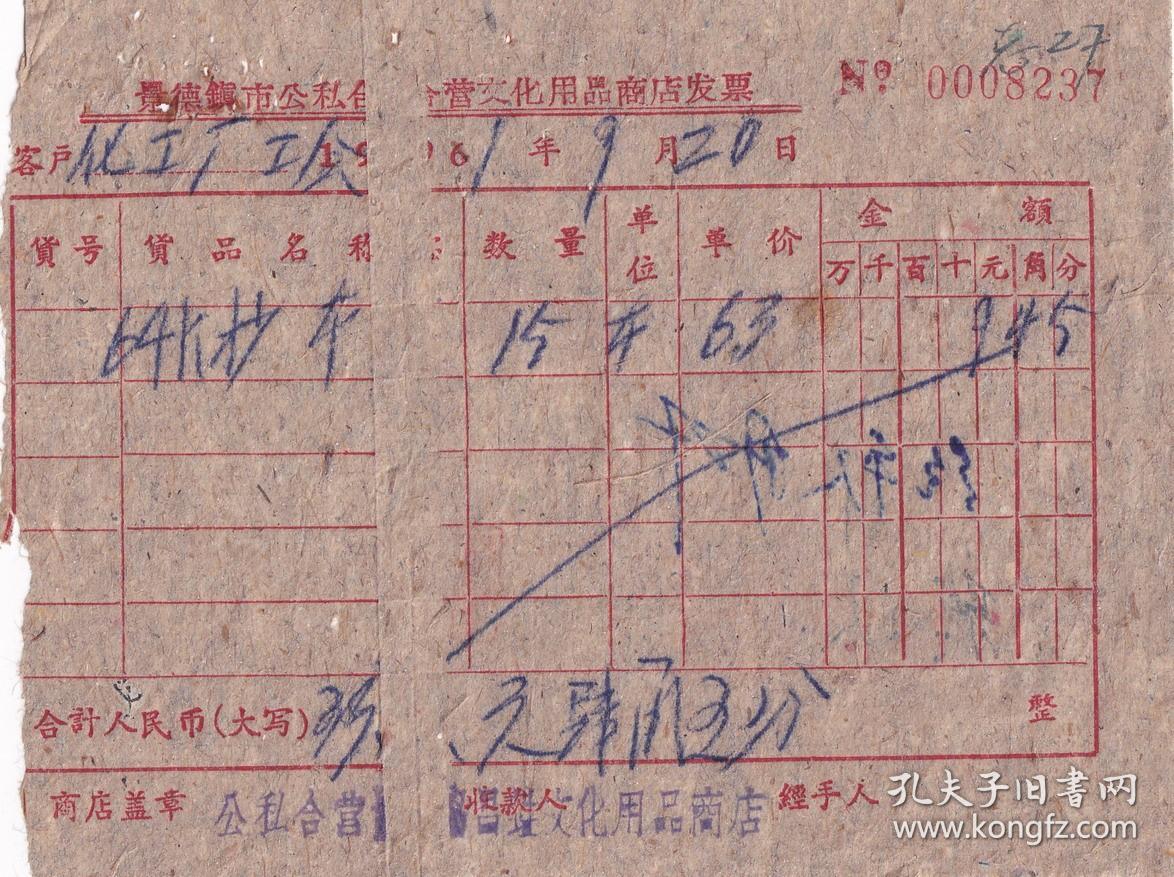 景德鎮市公私合合营文化用品商店发票
№ 0008237
客户 化工厂工会 1961年9月20日
貨号 貨品名称 数量 单位 单价 金額
万 千 百 十 元 角 分
64K抄本 15 本 63 9 4 5
合計人民币(大写) 玖元肆角五分 整
商店盖章 收款人 經手人
公私合营 文化用品商店
孔夫子旧书网
www.kongfz.com